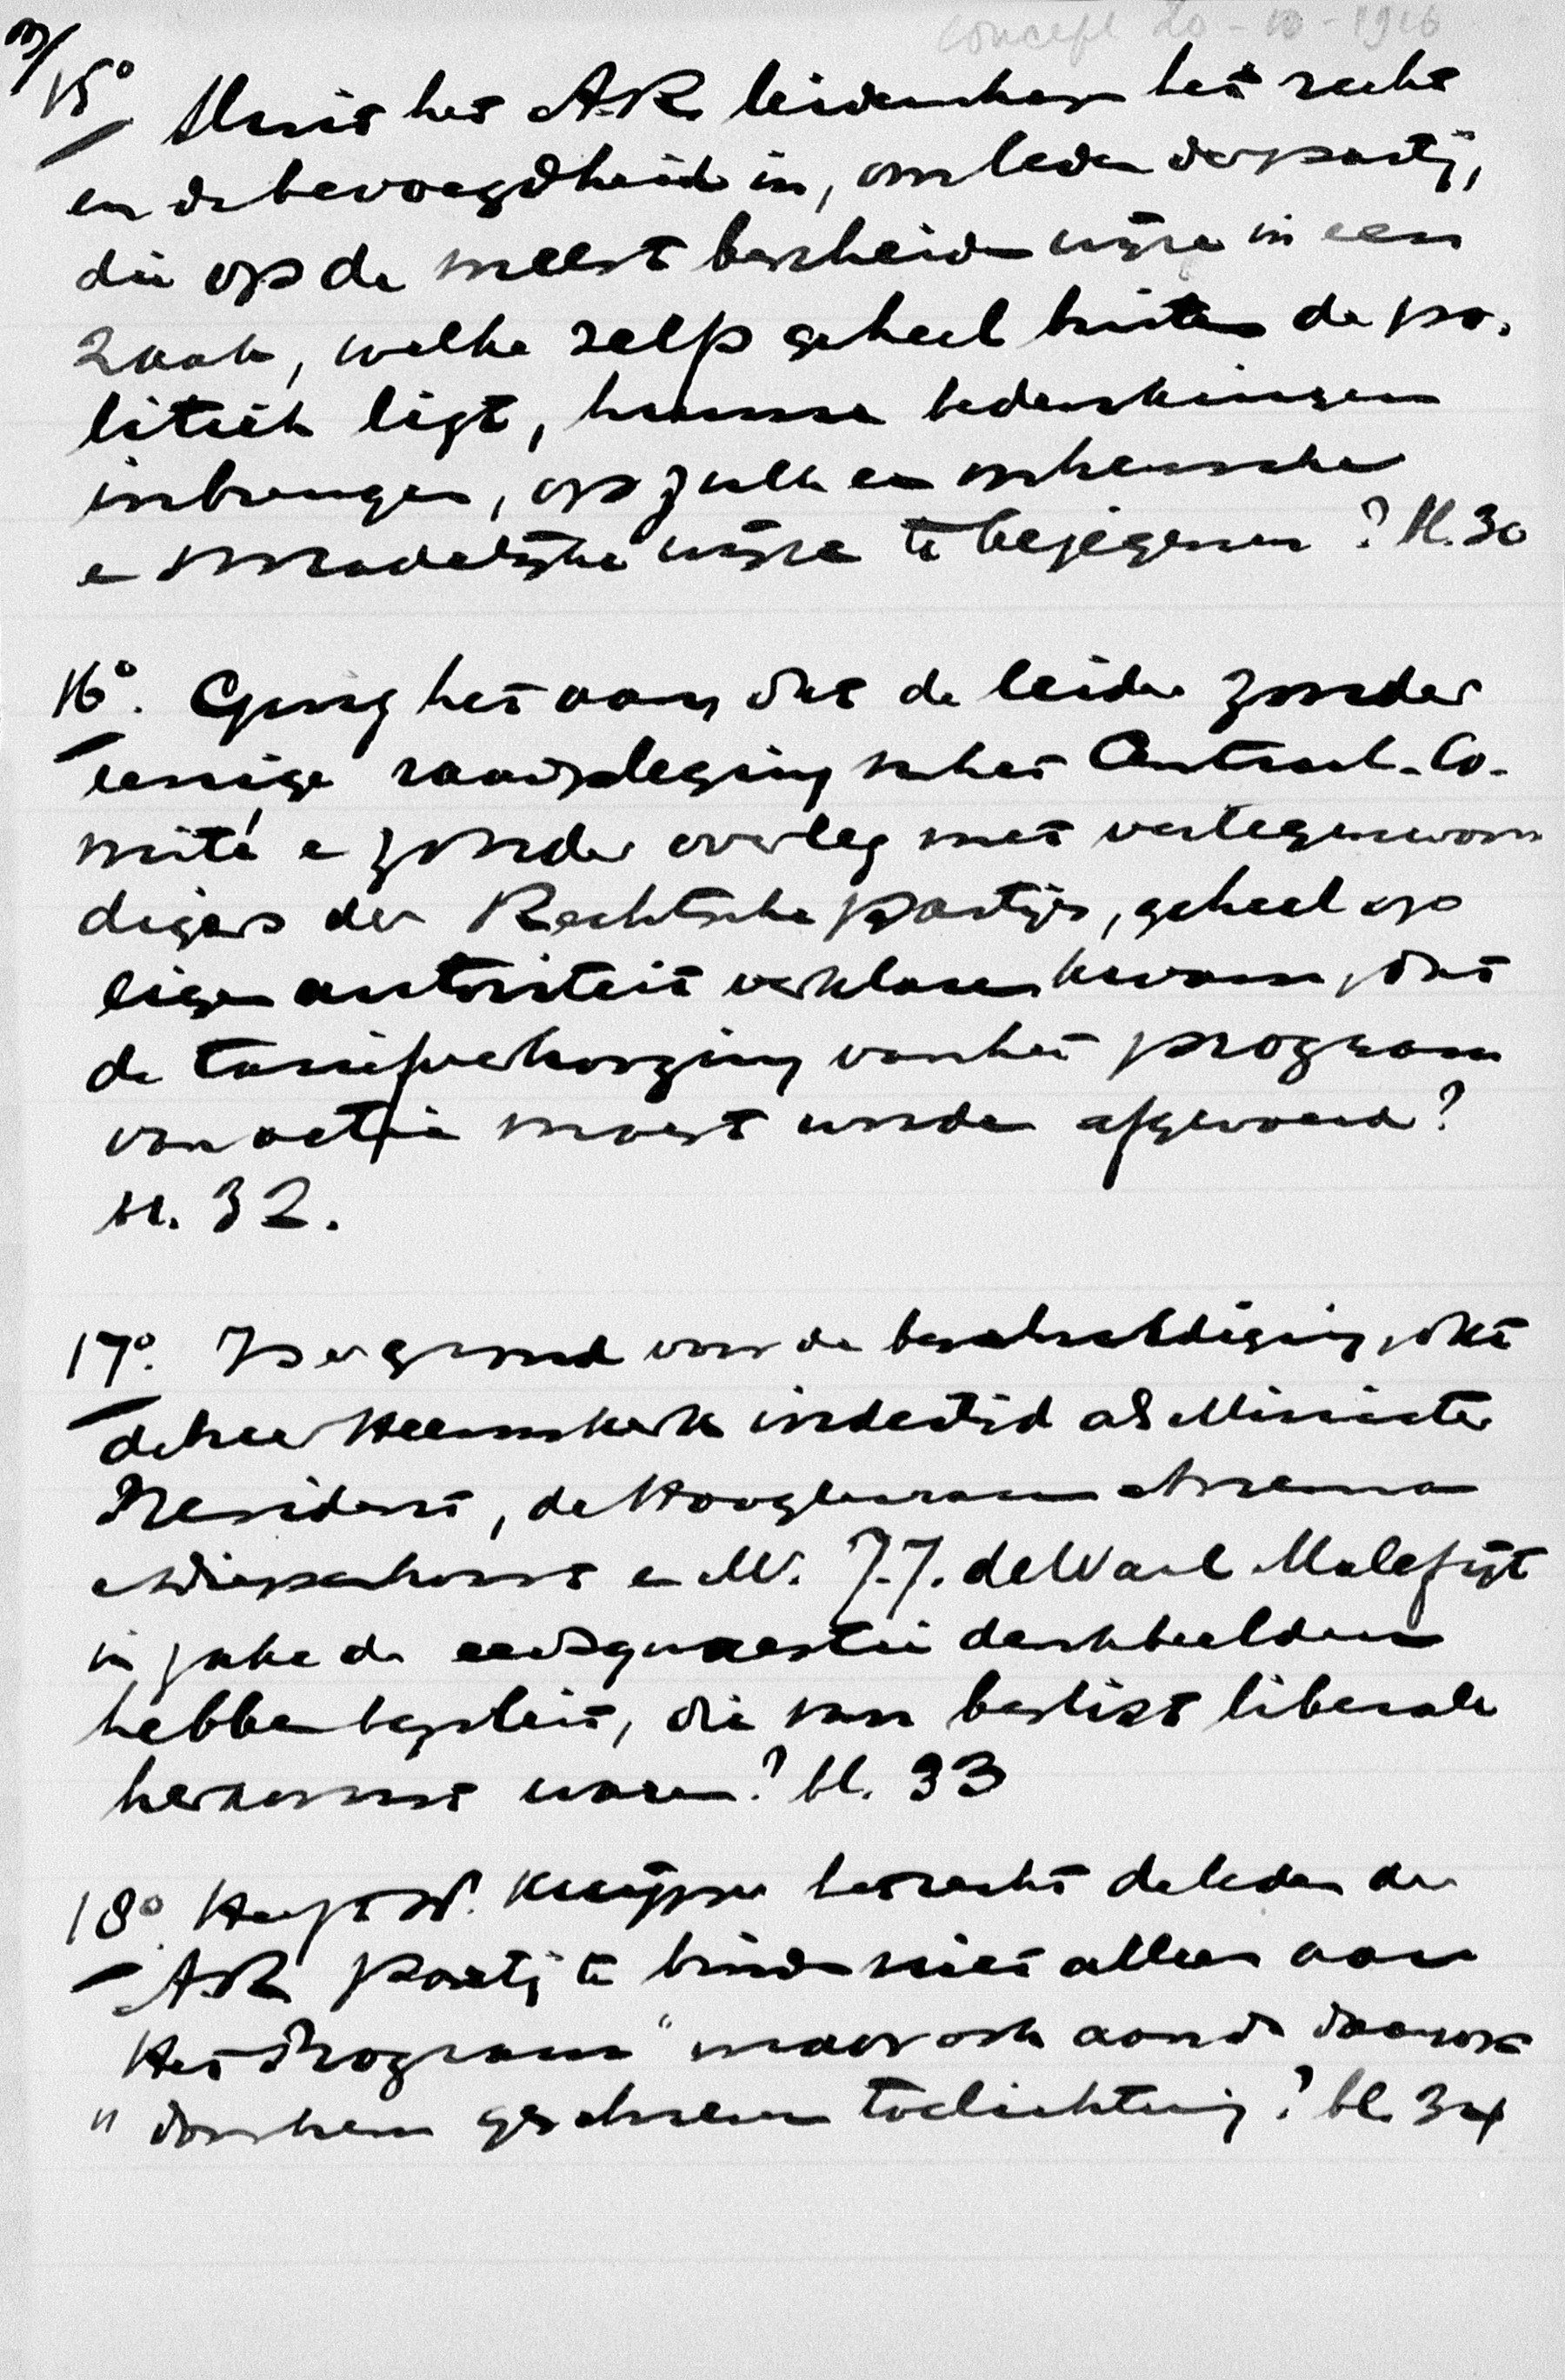 concept 20-10-1916
3/
15° Sluit het A.R. leiderschap het recht
en de bevoegdheid in, om leden der partij,
die op de meest bescheiden wijze in een
zaak, welke zelf geheel buiten de po-
litiek ligt, hunne bedenkingen
inbrengen, op zulk een onheusche
en smadelijke wijze te bejegenen? bl. 30
16°. Ging het aan, dat de leider zonder
eenige raadpleging van het Centraal-Co-
mité en zonder overleg met vertegenwoor
digers der Rechtsche partijen, geheel op
eigen autoriteit verklaren kwam, dat
de tariefverhooging van het program
van actie moest worden afgevoerd?
bl. 32.
17°. Is er grond voor de beschuldiging, dat
de heer Heemskerk indertijd als Minister
President, de Hoogleeraren Anema
en Diepenhorst en Mr. J.J. de Waal Malefijt
in zake de eedsquaestie denkbeelden
hebben bepleit, die van beslist liberale
herkomst waren? bl. 33
18°. Heeft Dr. Kuijper het recht de leden der
AR partij te binden niet alleen aan
Het Program" maar ook aan de daarop
" door hem geschreven toelichting? bl. 34